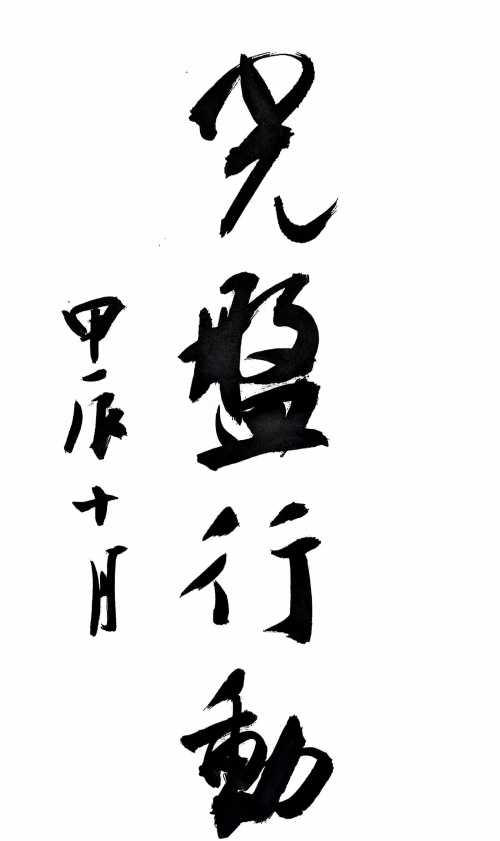 光盤行動
甲辰十月